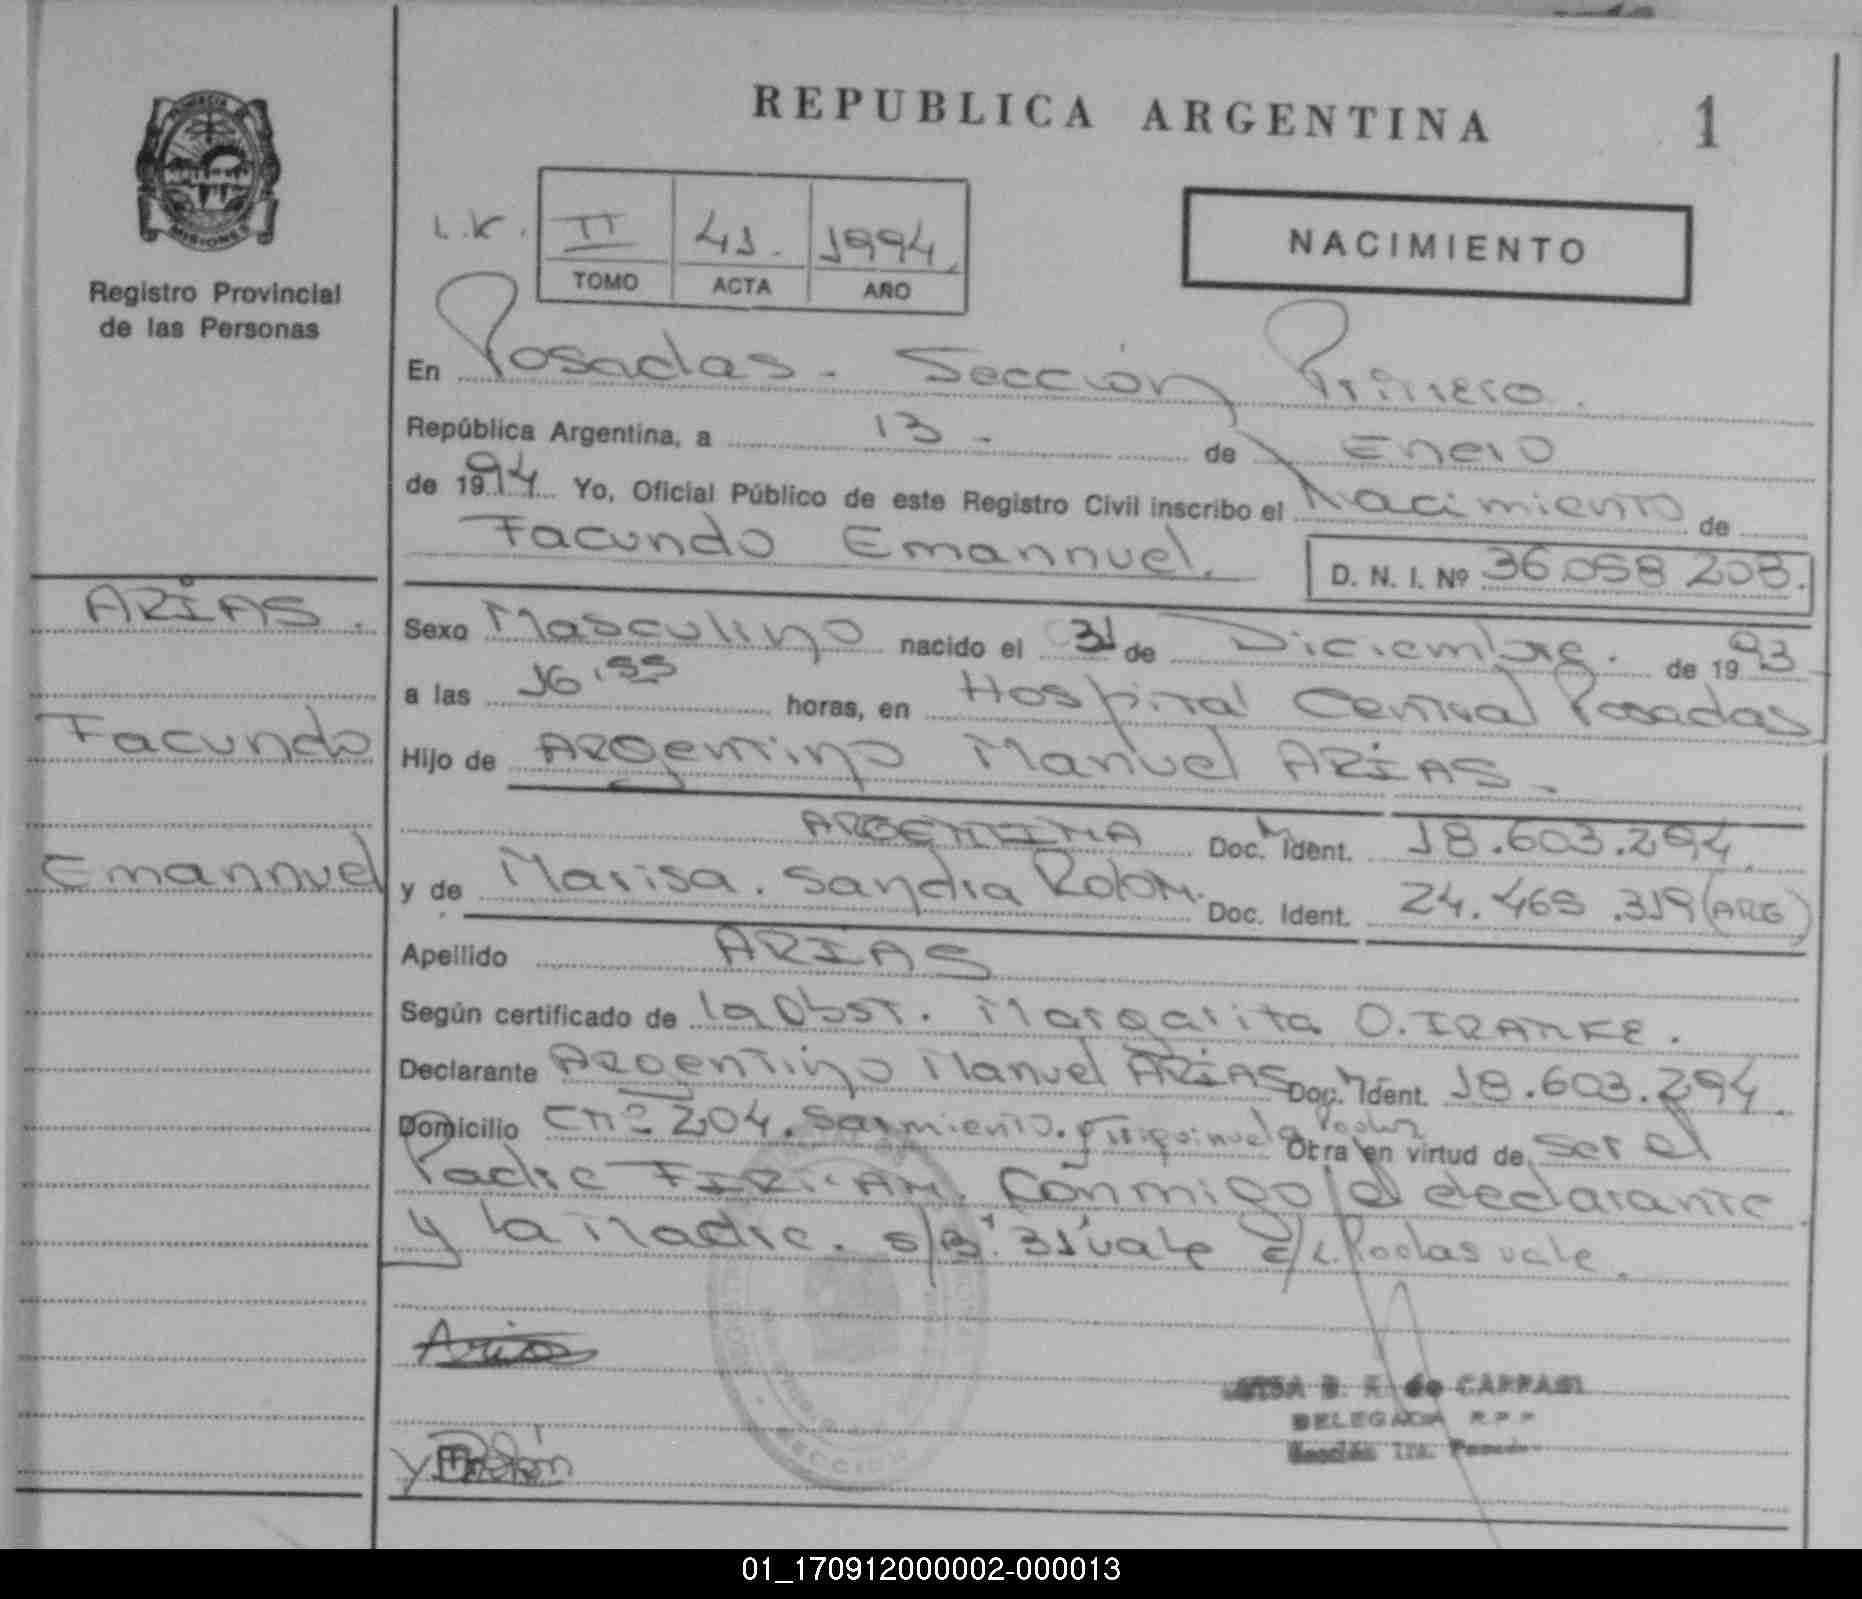 REPUBLICA ARGENTINA 1
PROVINCIA DE
MISIONES
Registro Provincial
de las Personas
L.K. II 41. 1994.
TOMO ACTA AÑO
NACIMIENTO
En Posadas. Sección Primera.
República Argentina, a 13 - de Enero
de 1994 Yo, Oficial Público de este Registro Civil inscribo el Nacimiento de
Facundo Emannuel. D. N. I. Nº 36.058 208.
ARIAS.
Facundo
Emannuel
Sexo Masculino nacido el 31 de Diciembre. de 1993
a las 16,55 horas, en Hospital Central Posadas
Hijo de Argentino Manuel ARIAS.
ARGENTINA Doc. Ident. 18.603.294.
y de Marisa. Sandra Rolon. Doc. Ident. 24.469.319 (ARG)
Apellido ARIAS
Según certificado de la Obst. Margarita O. IRANKE.
Declarante Argentino Manuel ARIAS Doc. Ident. 18.603.294.
Domicilio Cnº 204. Sarmiento. Otra en virtud de ser el
Padre FIRMAN. Conmigo el declarante
y la Madre. s/B. 31 vale E/L. Posdas vale.
Arias
Rolón
SECCION
B. F. de CARPASI
DELEGADA R.P.P
Sección 1ra.
01_170912000002-000013